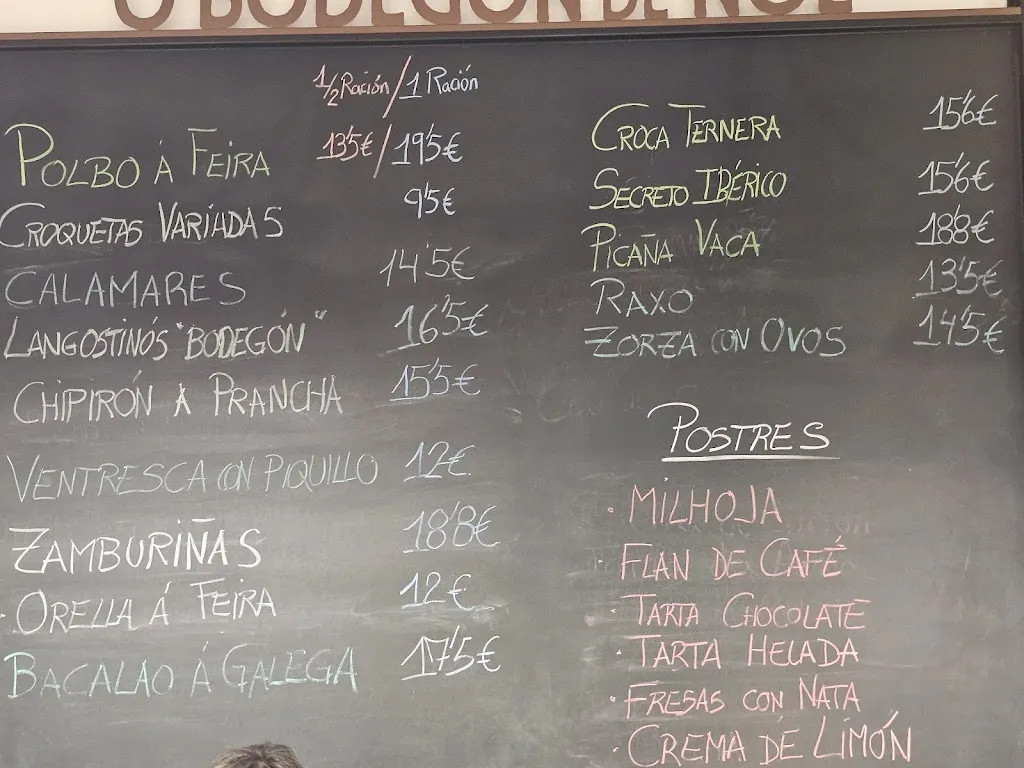 O BODEGÓN DE NOE
1/2 Ración / 1 Ración
POLBO Á FEIRA 13'5€ / 19'5€
CROQUETAS VARIADAS 9'5€
CALAMARES 14'5€
LANGOSTINOS "BODEGÓN" 16'5€
CHIPIRÓN A PRANCHA 15'5€
VENTRESCA CON PIQUILLO 12€
ZAMBURIÑAS 18'8€
· ORELLA Á FEIRA 12€
BACALAO Á GALEGA 17'5€
CROCA TERNERA 15'6€
SECRETO IBÉRICO 15'6€
PICAÑA VACA 18'8€
RAXO 13'5€
ZORZA CON OVOS 14'5€
POSTRES
· MILHOJA
· FLAN DE CAFÉ
· TARTA CHOCOLATE
· TARTA HELADA
· FRESAS CON NATA
· CREMA DE LIMÓN